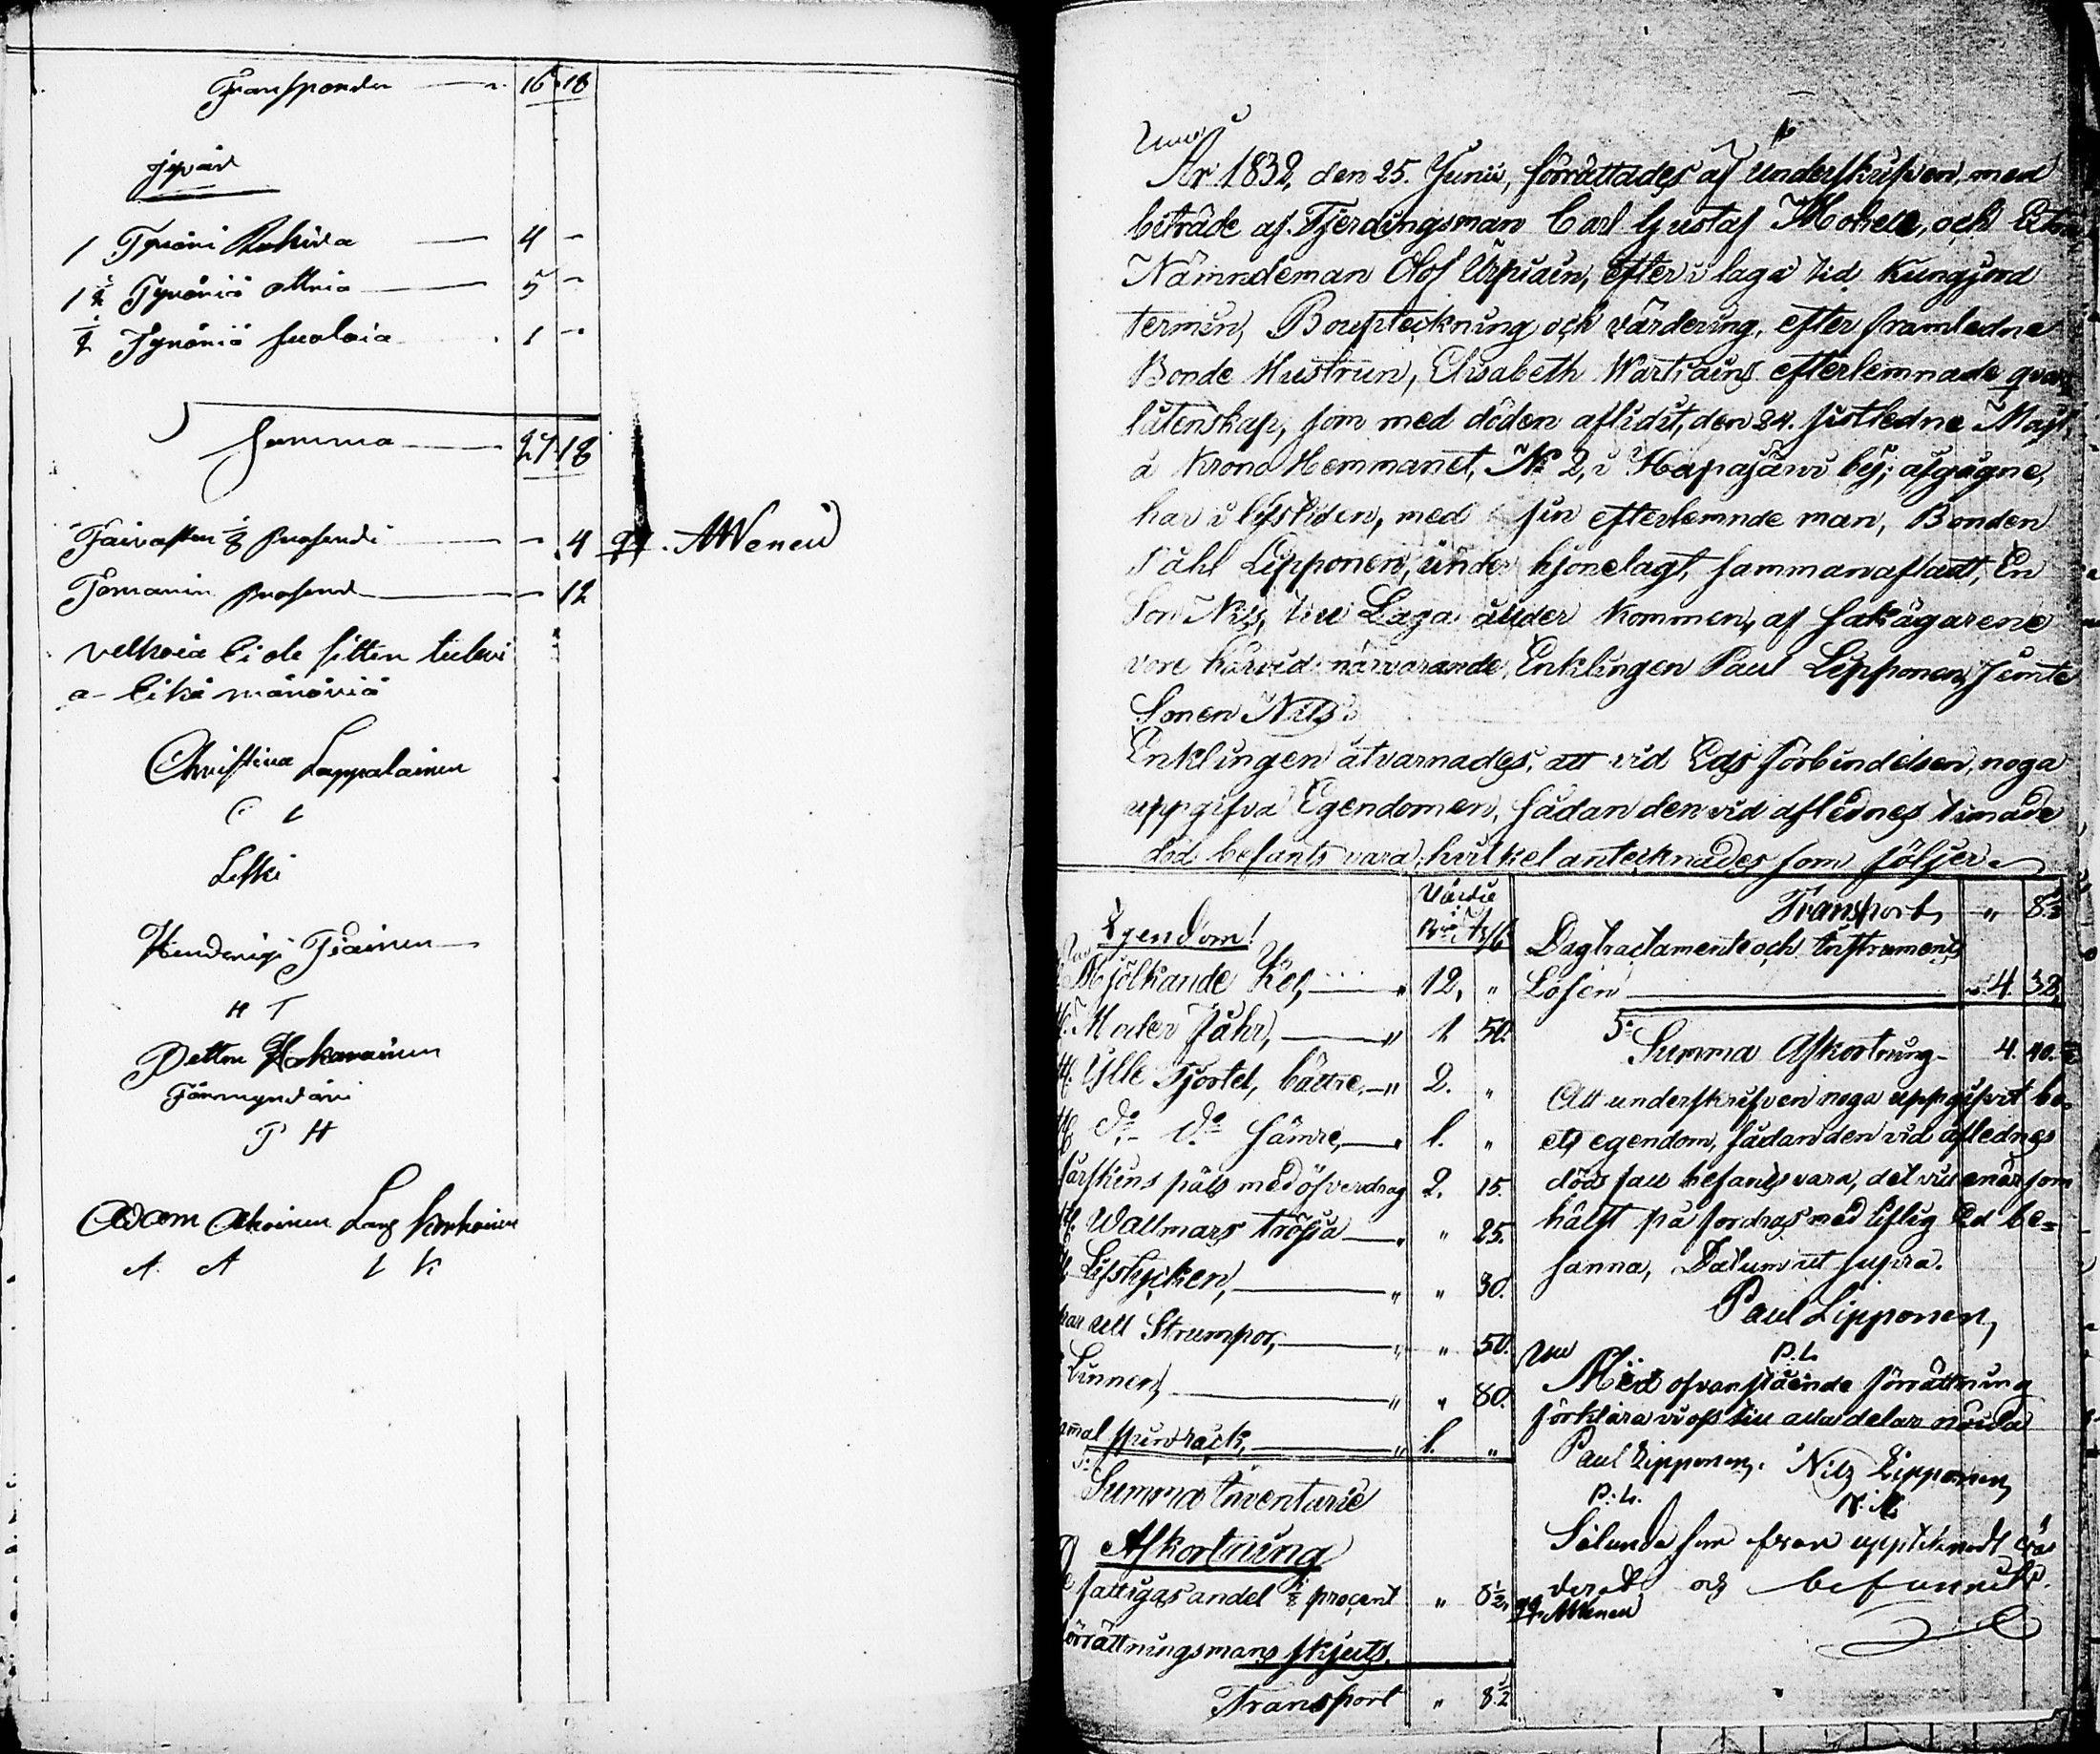 Transporder — 16 18
jyvär
1 Tynöri Rukiita — 4 —
1 ½ Tynöriä ottria — 5 —
½ Tynöriä suoloia 1 —
Summa — 27 18
Faivasten ⅛ prosendi — 4 qq. A Wenell
Tomarin prosend — 12
velkoia ei ole sitten tulevi
a- eikä mänöviä
Christina Lappalainen
C L
Leski
Henderigi Tiainen
H T
Petter Hakarainen
Förmyndäri
P H
Adam Ahoinen Lars Korhoinen
A A L K
År 1832, den 25. Junii, förrättades af Underskrifven, med
biträde af Fjerdingsman Carl Gustaf Mokell, och
Nämndeman Olof Urpiain, efter i laga tid kungjord
termin, Boupteckning och värdering, efter framledne
Bonde Hustrun, Elisabeth Wartiains efterlemnade qvar
låtenskap, som med döden aflidit, den 24. sistledne Maji,
å Krono Hemmanet, № 2, i Hapajärvi by; afgågne,
har i lifstiden, med sin efterlemnde man, Bonden
Påhl Lipponen, under hjonelagt, sammanaflat, En
Son Nils, till Laga ålder kommen, af sakägarene
vore härvid närvarande, Enklingen Paul Lipponen, Jemte
Sonen Nils.
Enklingen åtvarnades, att vid Eds förbindelsen, noga
uppgifva Egendomen, sådan den vid aflednes timade
död befants vara, hvilket antecknades som följer
Egendom! Värde
Mjölkande Ko, — 12, "
Moder Fåhr, — 1 50.
Ylle Tjortel, bättre — 2. "
Do Do sämre, — 1. "
fårskins päls med öfverdrag 2. 15.
Wallmars tröfja — " 25.
Lifstycken, — " 30.
par ull Strumpor, — " 50.
Linnen, — " 80.
— " 1. "
Summa Inventarie
Afkortning
fattigas andel ⅛ procent " 8½
örrättningsmans skjuts,
Transport " 8½
Transport, " 8½
Dagtractamente och Instruments
Lösen — 4. 32
Sa Summa Afkortning — 4. 40.½
Att underskrifven noga uppgifvit bo-
ets egendom, sådan den vid aflednes
döds fall befants vara, det vill enär som
hälst på fordras med liflig Ed be-
sanna, Datum ut supra.
Paul Lipponen,
P. L.
Med ofvanstående förrättning
förklara vi oss till alla delar nöida
Paul Lipponen, Nils Lipponen,
P. L.
Sålunda som ofvan uppteknadt vär
derat och befunnits.
qq. A Wenell